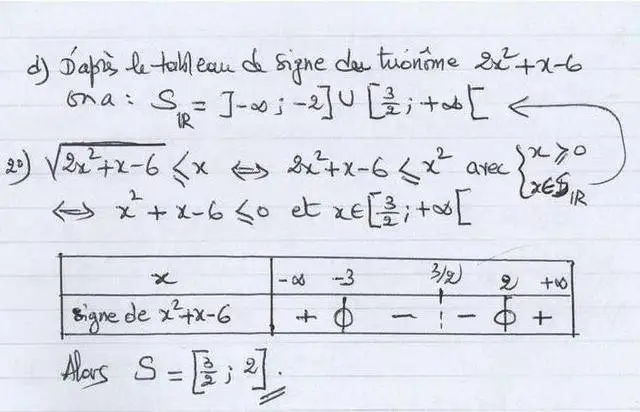 d) D'après le tableau de signe du trinôme 2x²+x-6
on a : S_IR = ]-∞ ; -2] ∪ [3/2 ; +∞[
2°) √(2x²+x-6) ⩽ x ⟺ 2x²+x-6 ⩽ x² avec { x ⩾ 0 x ∈ S_IR
⟺ x²+x-6 ⩽ 0 et x ∈ [3/2 ; +∞[
x -∞ -3 3/2 2 +∞
signe de x²+x-6 + 0 - - 0 +
Alors S = [3/2 ; 2].